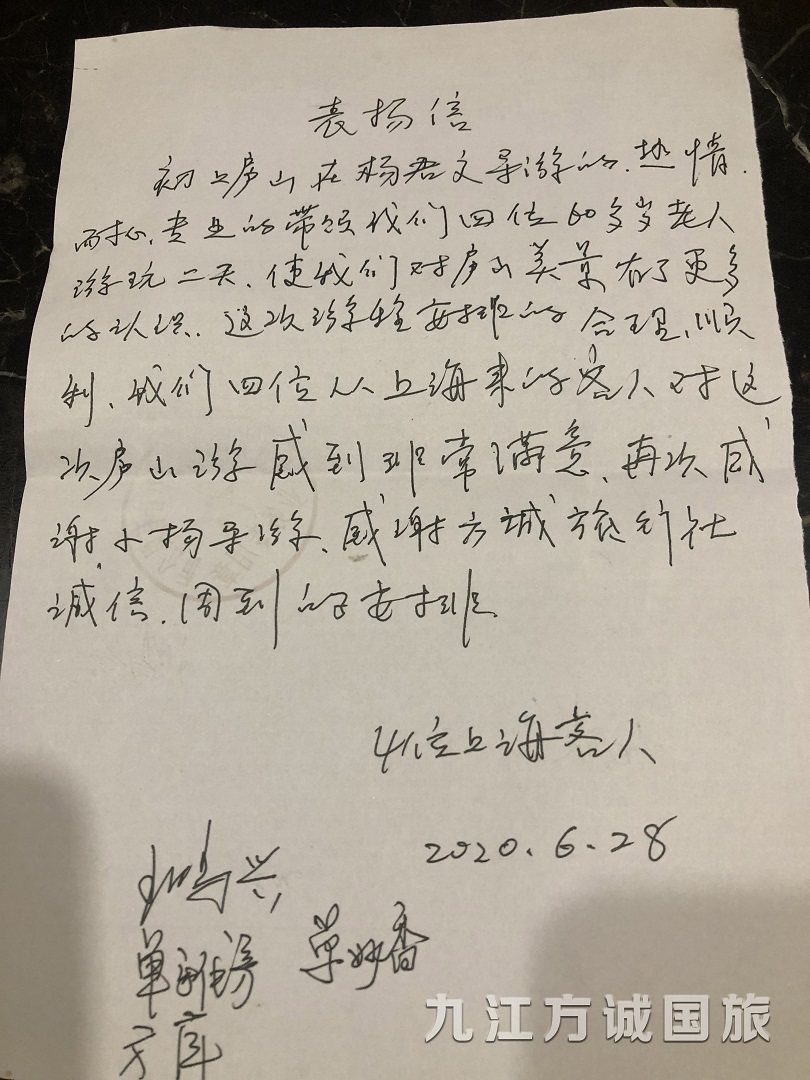 表扬信
初上庐山在杨君文导游的、热情、
耐心、专业的带领我们四位60多岁老人
游玩二天、使我们对庐山美景有了更多
的认识、这次游程安排的合理、顺
利、我们四位从上海来的客人对这
次庐山游感到非常满意、再次感
谢小杨导游、感谢方诚旅行社
诚信、周到的安排
4位上海客人
2020.6.28
鸣兴
单雅 单妙香
方库
九江方诚国旅